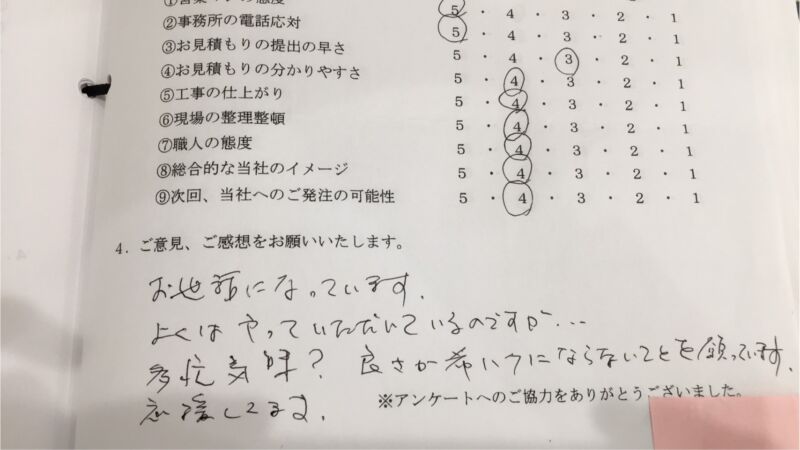 ①営業マンの態度 5・4・3・2・1
②事務所の電話応対 5・4・3・2・1
③お見積もりの提出の早さ 5・4・3・2・1
④お見積もりの分かりやすさ 5・4・3・2・1
⑤工事の仕上がり 5・4・3・2・1
⑥現場の整理整頓 5・4・3・2・1
⑦職人の態度 5・4・3・2・1
⑧総合的な当社のイメージ 5・4・3・2・1
⑨次回、当社へのご発注の可能性 5・4・3・2・1
4. ご意見、ご感想をお願いいたします。
お世話になっています。
よくは やっていただいているのですが…
多忙気味? 良さが希ハクにならないことを願っています。
応援してます。
※アンケートへのご協力をありがとうございました。